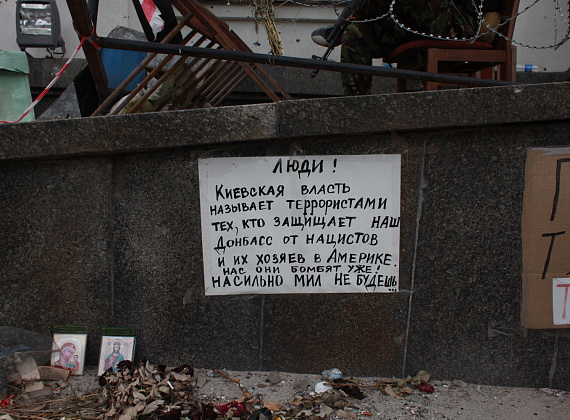 ЛЮДИ !
КИЕВСКАЯ ВЛАСТЬ
НАЗЫВАЕТ ТЕРРОРИСТАМИ
ТЕХ, КТО ЗАЩИЩАЕТ НАШ
ДОНБАСС ОТ НАЦИСТОВ
И ИХ ХОЗЯЕВ В АМЕРИКЕ.
НАС ОНИ БОМБЯТ УЖЕ!
НАСИЛЬНО МИЛ НЕ БУДЕШЬ...